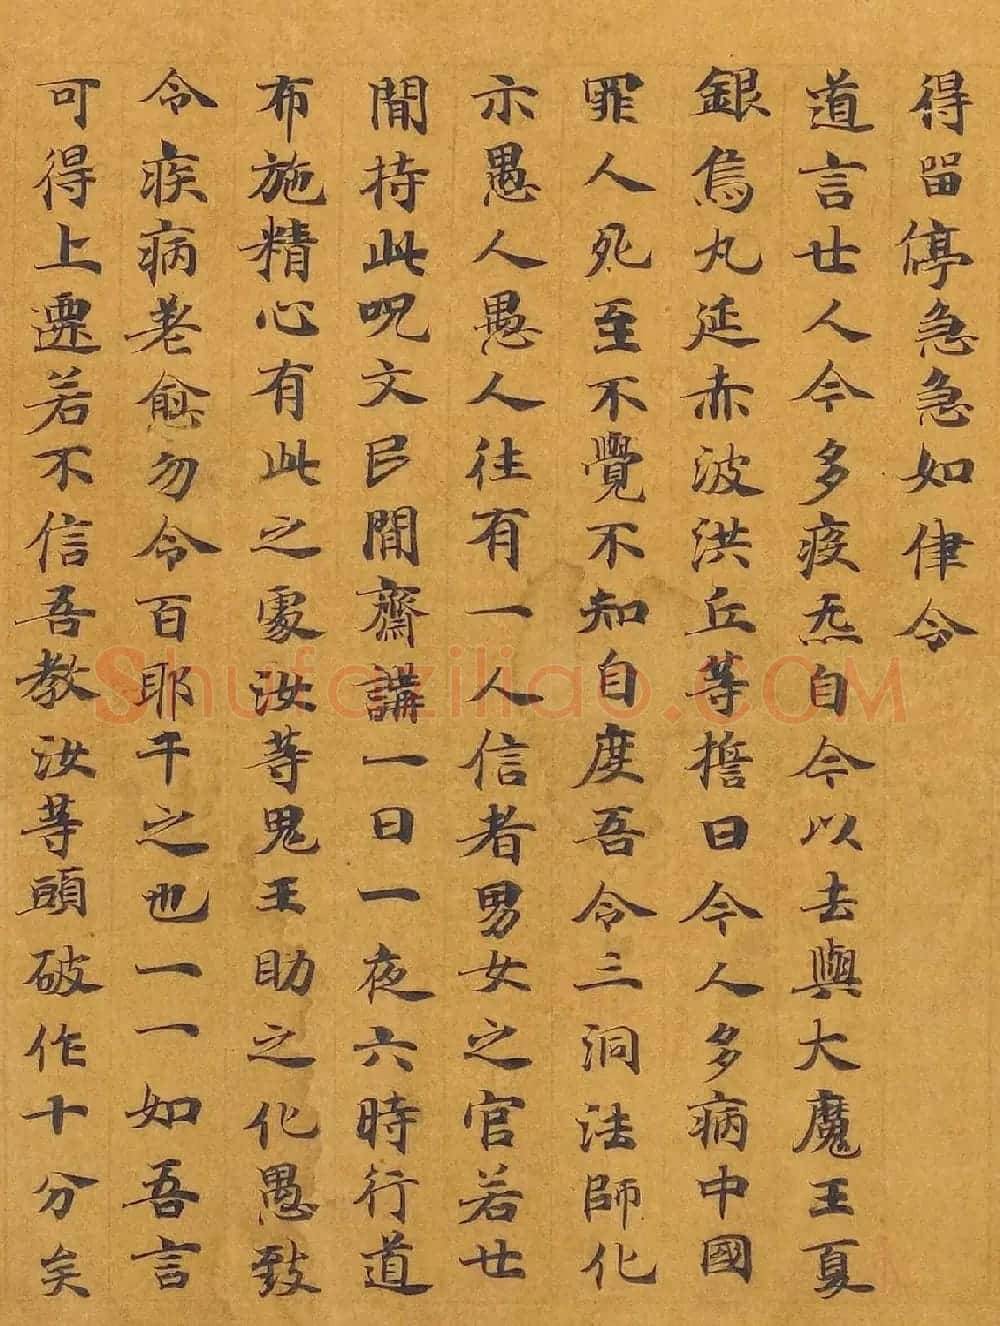 得留停急急如律令
道言廿人今多疫炁自今以去與大魔王夏
銀烏丸延赤波洪丘等擔曰今人多病中國
罪人死至不覺不知自度吾令三洞法師化
示愚人愚人往有一人信者男女之官若廿
間持此呪文民間齋講一日一夜六時行道
布施精心有此之處汝等鬼王助之化愚致
令疾病差愈勿令百耶干之也一一如吾言
可得上遷若不信吾教汝等頭破作十分矣
Shufaziliao.COM